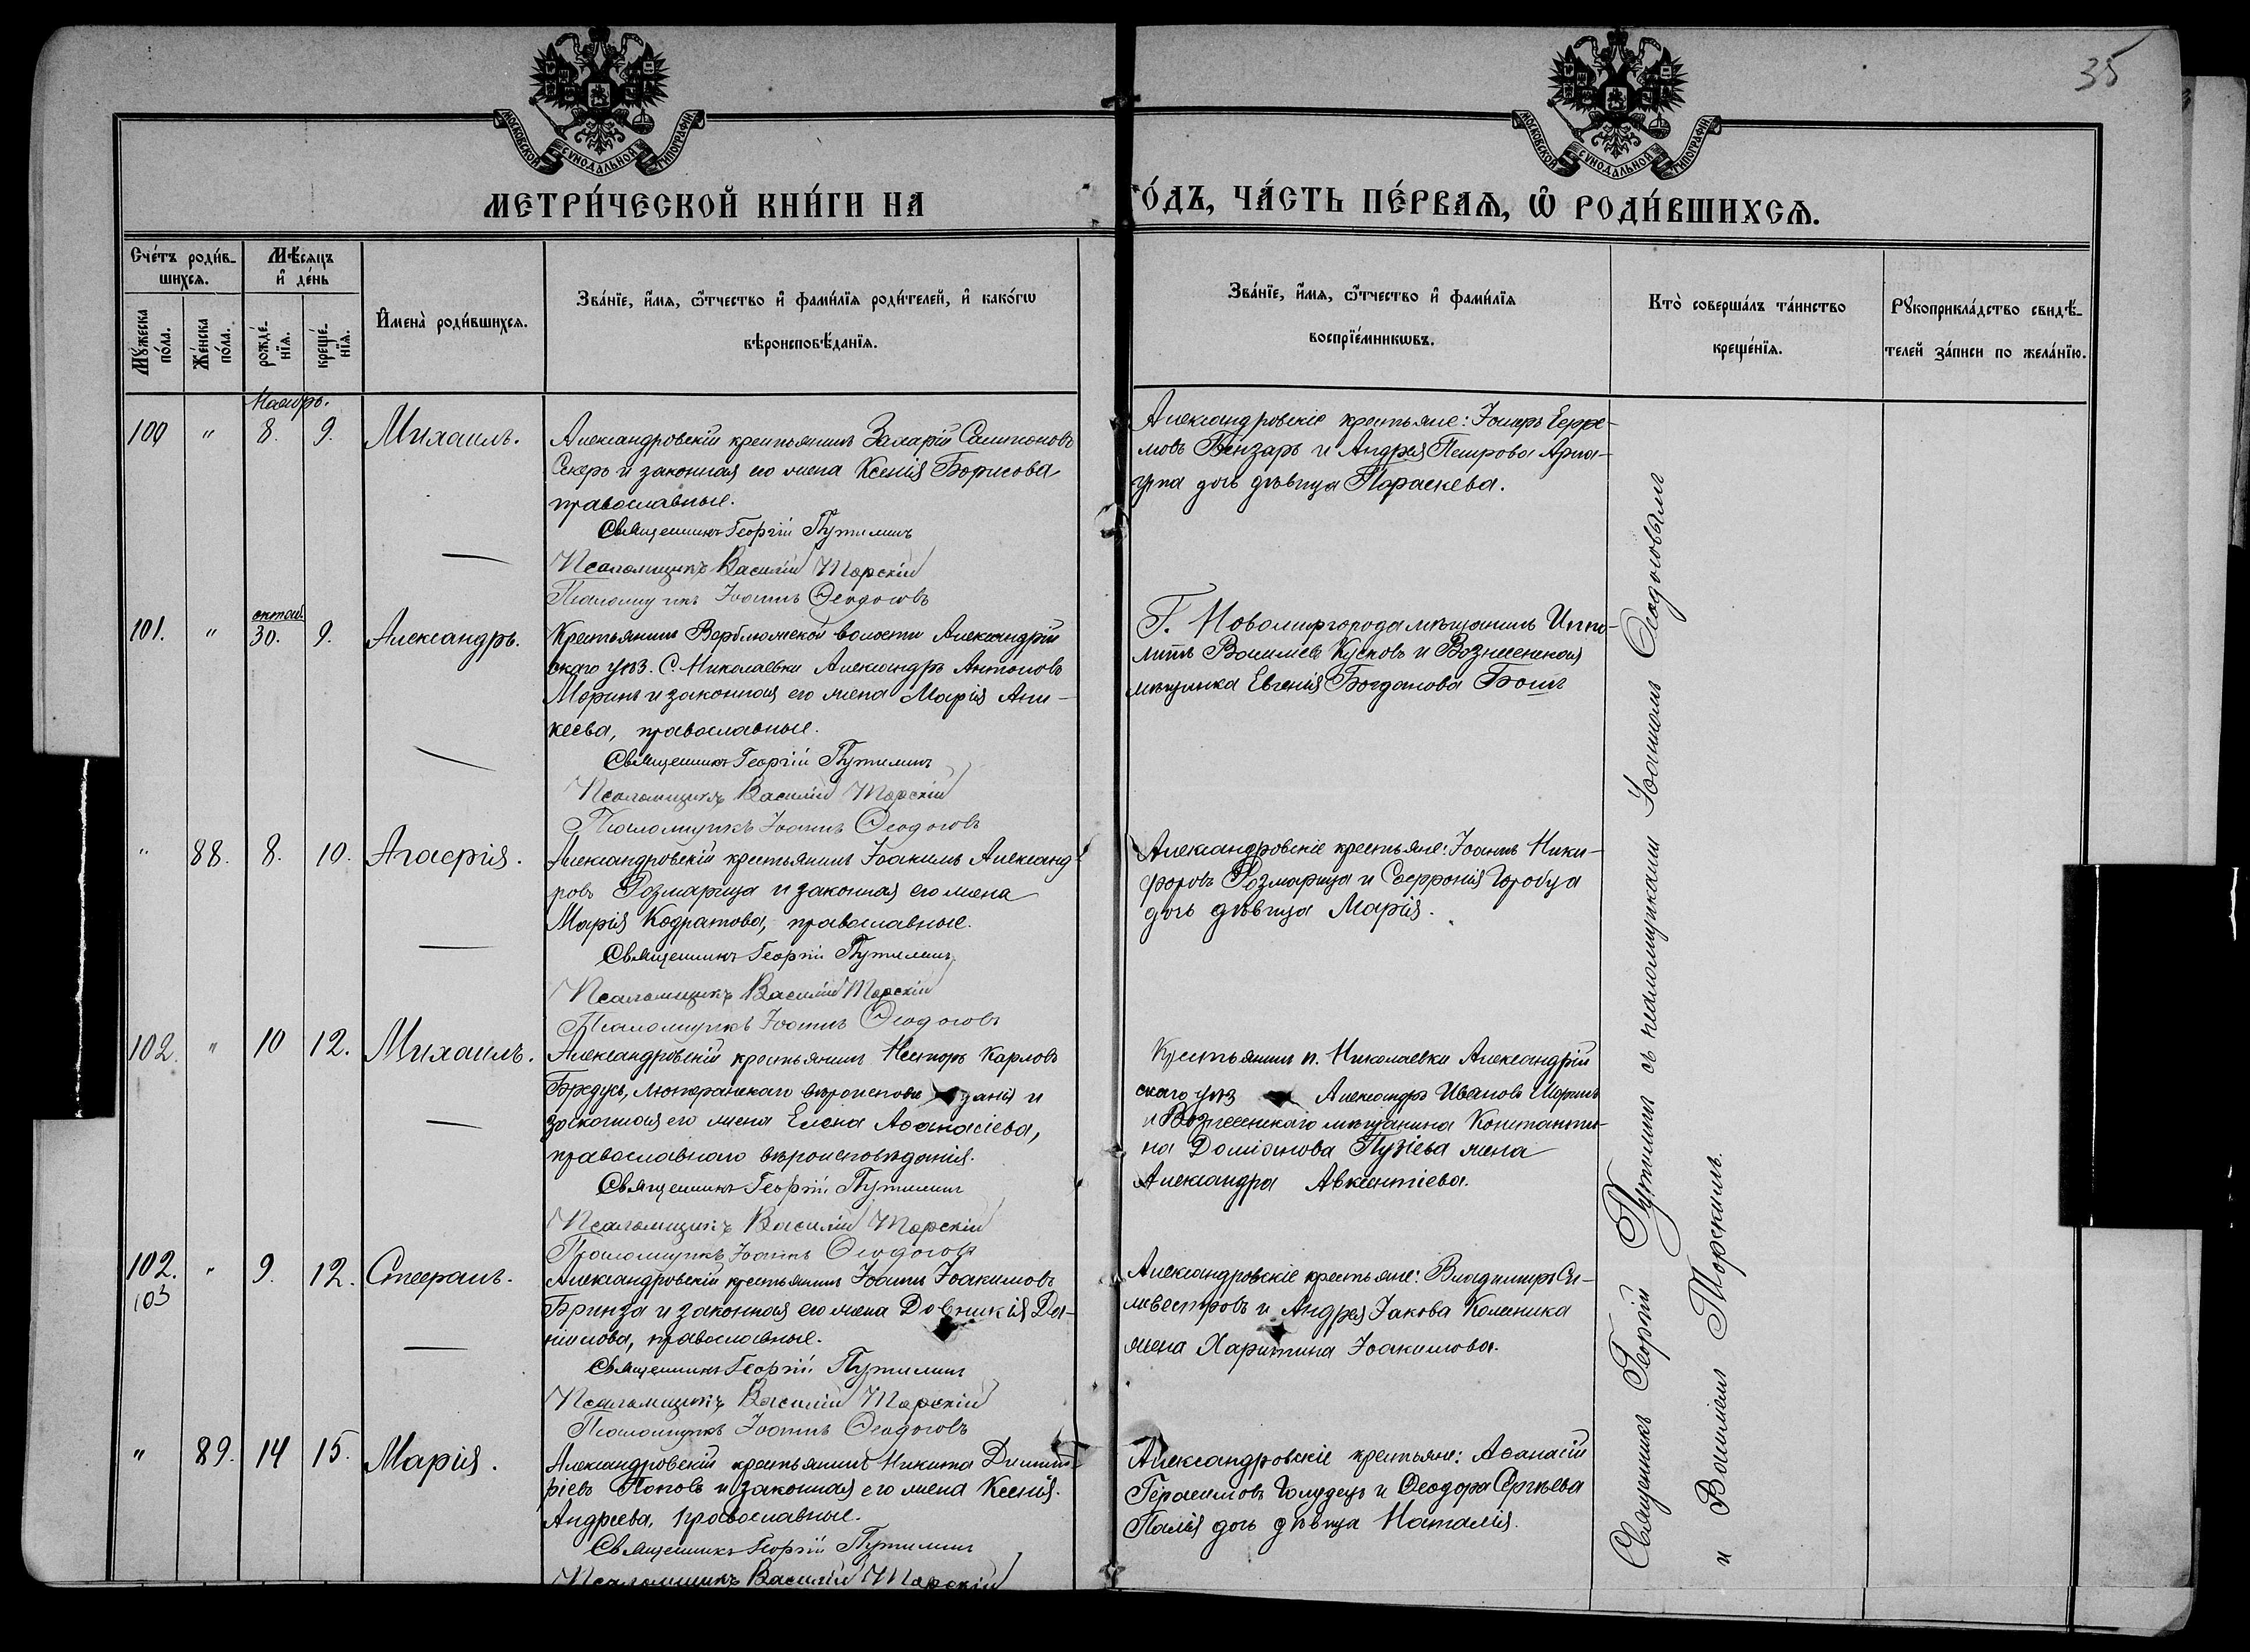 35
МОСКОВСКОЙ СѴНОДАЛЬНОЙ ТИПОГРАФІИ
МОСКОВСКОЙ СѴНОДАЛЬНОЙ ТИПОГРАФІИ
МЕТРИ́ЧЕСКОЙ КНИ́ГИ НА
О́ДЪ, ЧА́СТЬ ПЕ́РВАѦ, Ѿ РОДИ́ВШИХСѦ.
Сче́тъ роди́в-
шихсѧ.
Мѣ́сяцъ
и де́нь
Мꙋ́жеска
по́ла.
Же́нска
по́ла.
рожде́-
нїѧ.
креще́-
нїѧ.
Имена̀ роди́вшихсѧ.
Зва́нїе, и҆́мѧ, ѻ҆́тчество и҆ фами́лїѧ роди́телей, и҆ како́гѡ
вѣроисповѣ́данїѧ.
Зва́нїе, и҆́мѧ, ѻ҆́тчество и҆ фами́лїѧ
воспрїе́мникѡвъ.
Кто̀ соверша́лъ та́инство
креще́нїѧ.
Рꙋкоприкла́дство свидѣ́-
телей за́писи по жела́нїю.
Ноябрь.
100 " 8. 9. Михаилъ.
Александровскій крестьянинъ Захарій Сампсоновъ
Секеръ и законная его жена Ксенія Борисова
православные.
Священникъ Георгій Путилинъ
Псаломщикъ Василій Торскій
Псаломщикъ Іоаннъ Ѳеодосовъ
Александровскіе крестьяне: Іосифъ Ефре-
мовъ Бензарь и Андрея Петрова Арна-
ута дочь дѣвица Параскева.
101. " октяб. 30. 9. Александръ.
Крестьянинъ Верблюжской волости Александрій
скаго уѣз. С. Николаевки Александръ Антоновъ
Моринъ и законная его жена Марія Ани-
кеева, православные.
Священникъ Георгій Путилинъ
Псаломщикъ Василій Торскій
Псаломщикъ Іоаннъ Ѳеодосовъ
Г. Новомиргорода мѣщанинъ Иппо-
литъ Васильевъ Кусковъ и Вознесенская
мѣщанка Евгенія Богданова Бошъ
" 88. 8. 10. Агафія.
Александровскій крестьянинъ Іоакимъ Александ-
ровъ Розмарица и законная его жена
Марія Кодратова, православные.
Священникъ Георгій Путилинъ
Псаломщикъ Василій Торскій
Псаломщикъ Іоаннъ Ѳеодосовъ
Александровскіе крестьяне: Іоаннъ Ники-
форовъ Розмарица и Софронія Горобца
дочь дѣвица Марія.
102. " 10 12. Михаилъ.
Александровскій крестьянинъ Несторъ Карловъ
Бредусъ, лютеранскаго вѣроисповѣданія и
законная его жена Елена Аѳанасіева,
православнаго вѣроисповѣданія.
Священникъ Георгій Путилинъ
Псаломщикъ Василій Торскій
Псаломщикъ Іоаннъ Ѳеодосовъ
Крестьянинъ п. Николаевки Александрій
скаго уѣз Александръ Ивановъ Моринъ
и Вознесенскаго мѣщанина Константи-
на Даміанова Пузіева жена
Александра Авксентіева.
102. " 9. 12. Стефанъ.
103
Александровскій крестьянинъ Іоаннъ Іоакимовъ
Бринза и законная его жена Довникія Да-
ніилова, православные.
Священникъ Георгій Путилинъ
Псаломщикъ Василій Торскій
Псаломщикъ Іоаннъ Ѳеодосовъ
Александровскіе крестьяне: Владимиръ Си-
львестровъ и Андрея Іакова Колесника
жена Харитина Іоакимова.
" 89. 14 15. Марія.
Александровскій крестьянинъ Никита Димит-
ріевъ Поповъ и законная его жена Ксенія
Андреева, православные.
Священникъ Георгій Путилинъ
Псаломщикъ Василій Торскій
Александровскіе крестьяне: Аѳанасій
Герасимовъ Голудецъ и Ѳеодора Сергѣева
Палія дочь дѣвица Наталія.
Священникъ Георгій Путилинъ съ псаломщиками Іоанномъ Ѳеодосовымъ
и Василіемъ Торскимъ.